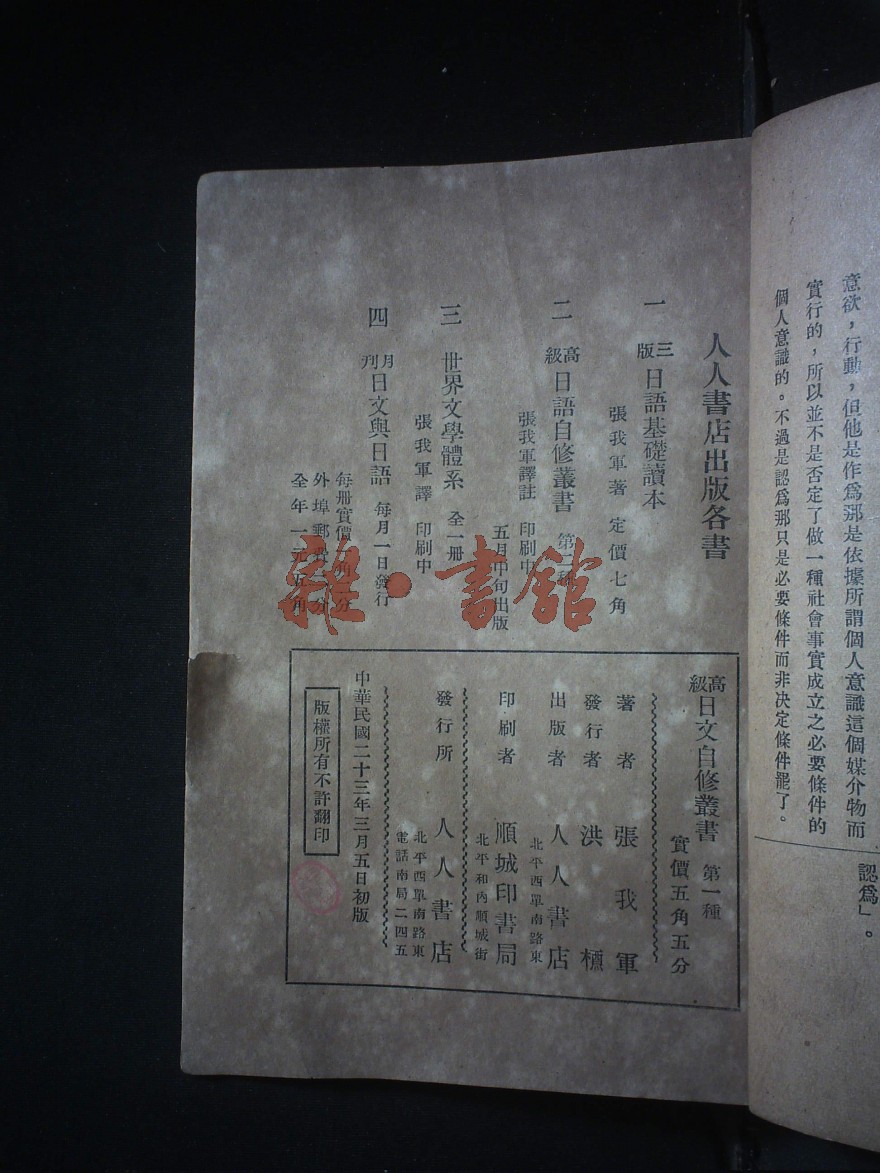 意欲，行動，但他是作爲那是依據所謂個人意識這個媒介物而
實行的，所以並不是否定了做一種社會事實成立之必要條件的
個人意識的。不過是認爲那只是必要條件而非决定條件罷了。
認爲」。
人人書店出版各書
一 三版 日語基礎讀本
張我軍著 定價七角
二 高級 日語自修叢書 第二種
張我軍譯註 印刷中
五月中旬出版
三 世界文學體系 全一册
張我軍譯 印刷中
四 月刊 日文與日語 每月一日發行
每册實價一角二分
外埠郵費 分
全年一元五角
雜·書館
高級 日文自修叢書 第一種
實價五角五分
著者 張我軍
發行者 洪櫄
出版者 人人書店
北平西單南路東
印刷者 順城印書局
北平和內順城街
發行所 人人書店
北平西單南路東
電話南局二四五
中華民國二十三年三月五日初版
版權所有不許翻印